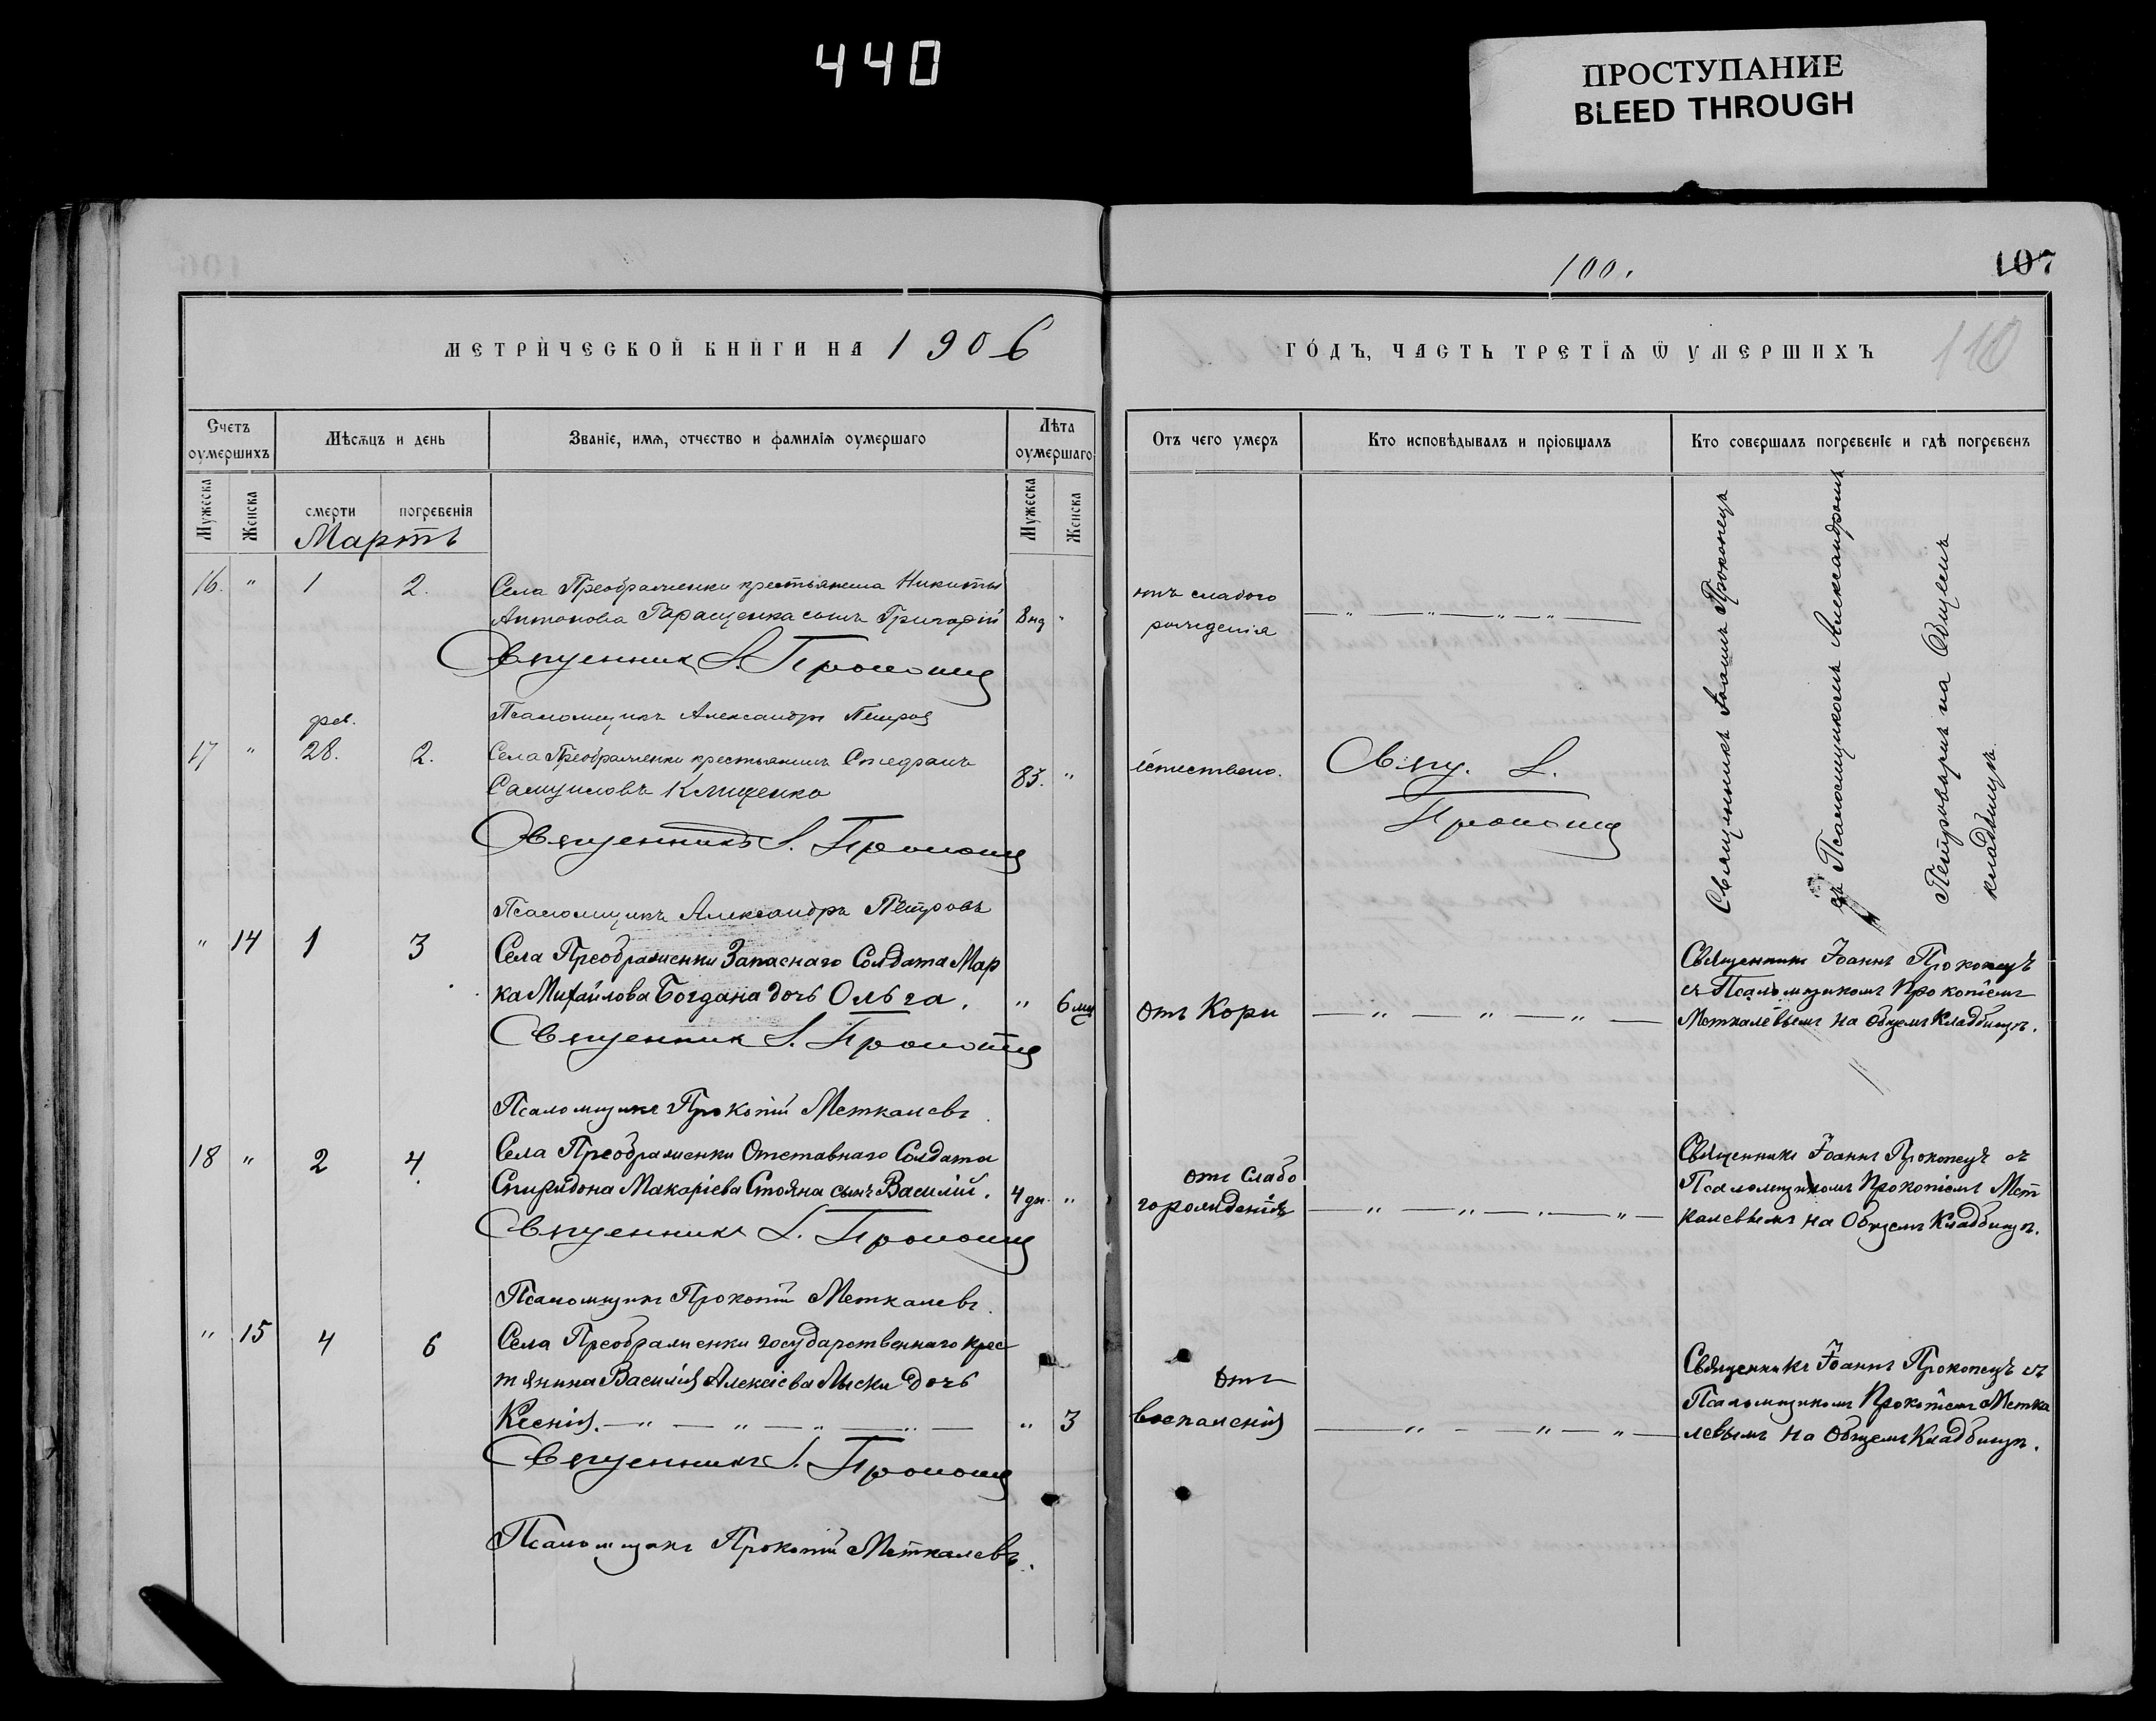 440
ПРОСТУПАНИЕ
BLEED THROUGH
100.
107
110
МЕТРИЧЕСКОЙ КНИГИ НА 1906
ГОДЪ, ЧАСТЬ ТРЕТІѦ Ѿ УМЕРШИХЪ
Счетъ оумершихъ
Мѣсѧцъ и день
Званіе, имѧ, отчество и фамиліѧ оумершаго
Лѣта оумершаго
Отъ чего умеръ
Кто исповѣдывалъ и пріобщалъ
Кто совершалъ погребеніе и гдѣ погребенъ
Мужеска
Женска
смерти
погребенія
Мужеска
Женска
Мартъ
16. " 1 2.
Села Преображенки крестьянина Никиты
Антонова Таращенка сынъ Григорій 8 нд "
отъ слабого
рожденія
Священник І. Прокопец
Псаломщикъ Александръ Петров
фев.
17 " 28. 2.
Села Преображенки крестьянинъ Стефанъ
Самуиловъ Клищенко 83. "
естествено.
Свящ. І.
Прокопец
Священникъ І. Прокопец
Псаломщикъ Александръ Петровъ
Священникъ Іоаннъ Прокопецъ
съ Псаломщикомъ Александромъ
Петровымъ на Общемъ
кладбищѣ.
" 14 1 3
Села Преображенки Запаснаго Солдата Мар
ка Михайлова Богдана дочь Ольга. " 6 мц
отъ Кори
Священникъ Іоаннъ Прокопецъ
съ Псаломщикомъ Прокопіемъ
Меткалевымъ на Общемъ Кладбищѣ.
Священник І. Прокопец
Псаломщикъ Прокопій Меткалевъ
18 " 2 4.
Села Преображенки Отставнаго Солдата
Спиридона Макаріева Стояна сынъ Василій. 4 дн. "
отъ Слабо
горожденія
Священникъ Іоаннъ Прокопецъ съ
Псаломщикомъ Прокопіемъ Мет
калевымъ на Общемъ Кладбищѣ.
Священникъ І. Прокопец
Псаломщикъ Прокопій Меткалевъ.
" 15 4 6
Села Преображенки государственнаго крес
тянина Василія Алексіева Лыски дочь
Ксенія. " 3
Отъ
воспаленія
Священникъ Іоаннъ Прокопецъ съ
Псаломщикомъ Прокопіемъ Метка
левымъ на Общемъ Кладбищѣ.
Священникъ І. Прокопец
Псаломщикъ Прокопій Меткалевъ.